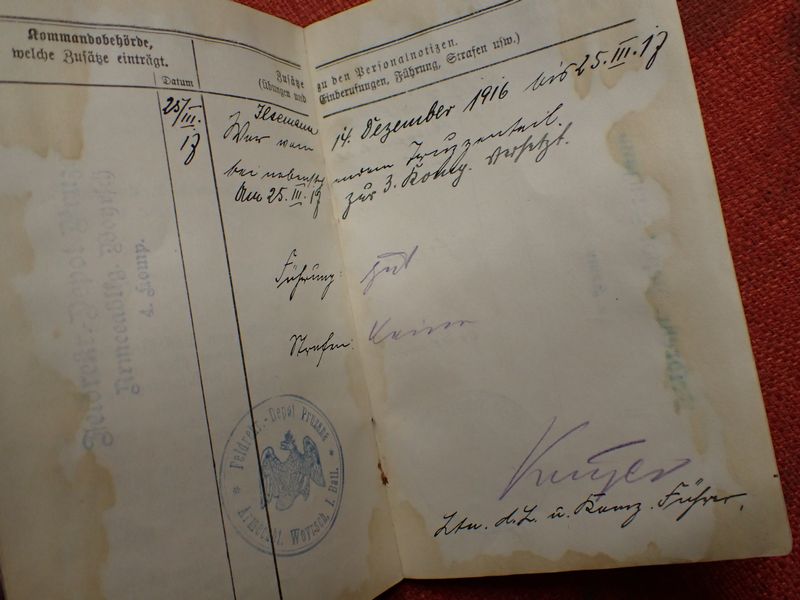 Kommandobehörde,
welche Zusätze einträgt.
Datum
Zusätze zu den Personalnotizen.
(Übungen und Einberufungen, Führung, Strafen usw.)
25/III. 17
Ilsemann
War vom 14. Dezember 1916 bis 25.III.17
bei nebenst. Truppenteil.
Am 25.III.17 zur 3. Komp. versetzt.
Führung: gut
Strafen: keine
Feldrekr.-Depot
Armeeabtlg. Woyrsch
4. Komp.
Feldrekr.-Depot Pruzana
Armeeabt. Woyrsch, 1. Batl.
Ltn. d.L. u. Komp. Führer.